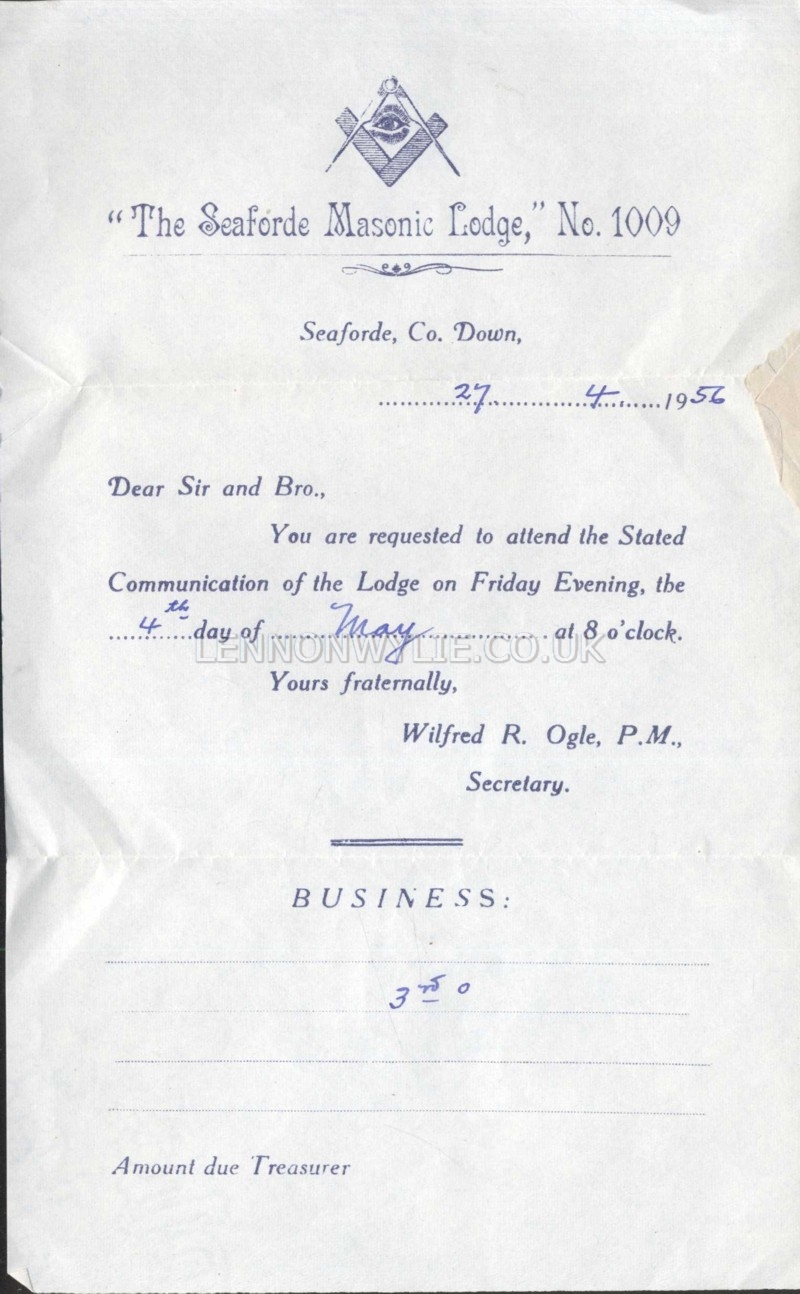 "The Seaforde Masonic Lodge," No. 1009
Seaforde, Co. Down,
27 4 1956
Dear Sir and Bro.,
You are requested to attend the Stated
Communication of the Lodge on Friday Evening, the
4th day of May at 8 o'clock.
LENNONWYLIE.CO.UK
Yours fraternally,
Wilfred R. Ogle, P.M.,
Secretary.
BUSINESS:
3rd o
Amount due Treasurer